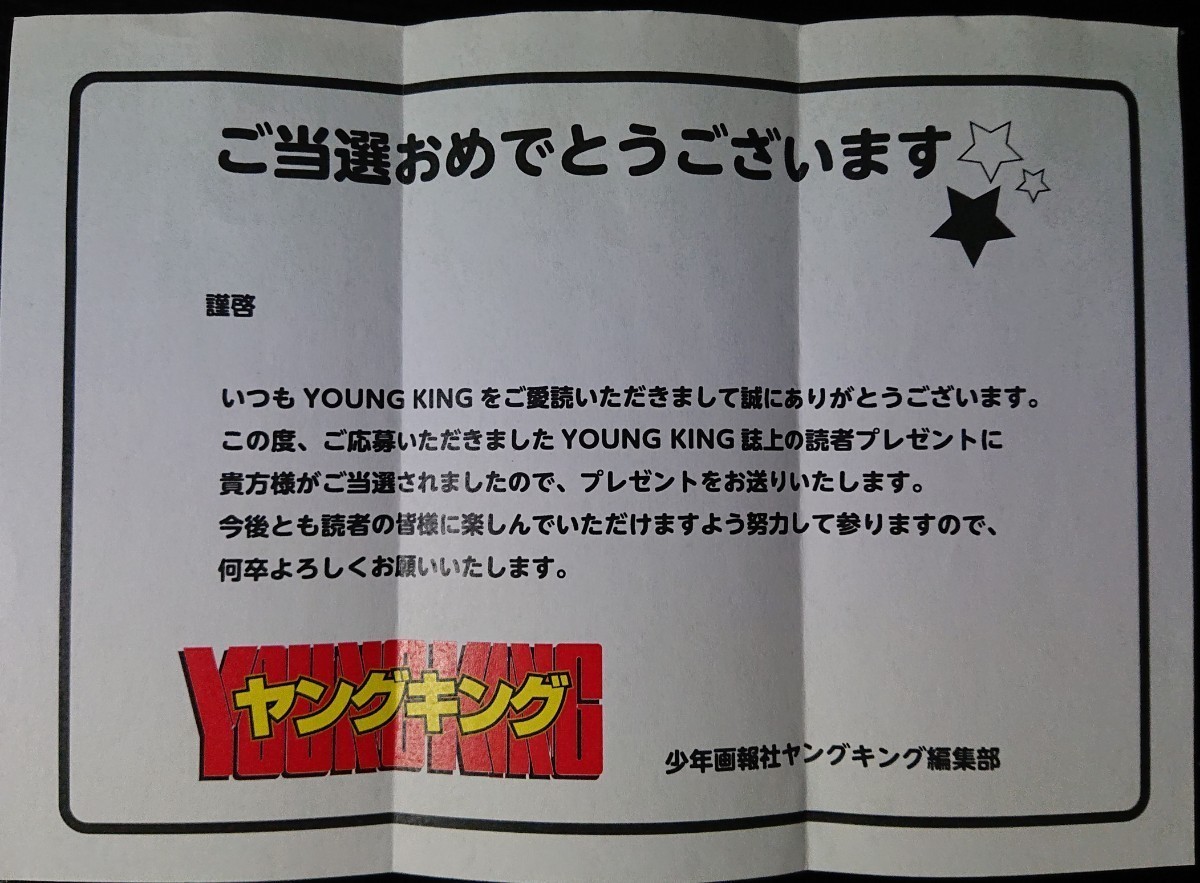 ご当選おめでとうございます
謹啓
いつも YOUNG KING をご愛読いただきまして誠にありがとうございます。
この度、ご応募いただきました YOUNG KING 誌上の読者プレゼントに
貴方様がご当選されましたので、プレゼントをお送りいたします。
今後とも読者の皆様に楽しんでいただけますよう努力して参りますので、
何卒よろしくお願いいたします。
YOUNG KING
ヤングキング
少年画報社ヤングキング編集部